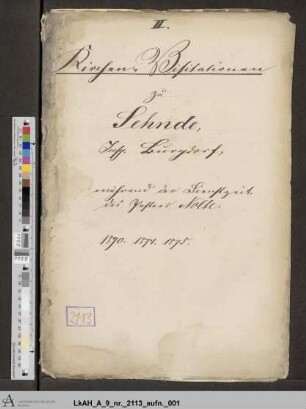 II.
Kirchen-Visitationen
zu
Sehnde,
Insp. Burgdorf,
während der Dienstzeit
des Pastors Nolte.
1870. 1874. 1875.
2113
LkAH_A_9_nr._2113_aufn._001